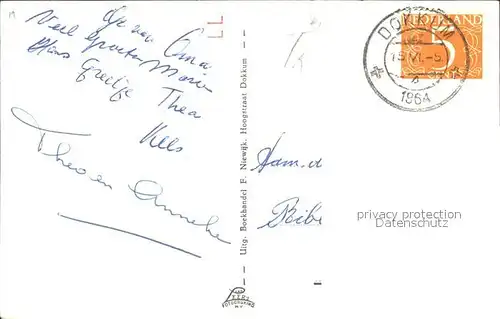 Oma
Veel groeten Marian
Hans Greetje Thea
Kees
Theo en Anneke
Uitg. Boekhandel F. Niewijk, Hoogstraat Dokkum
Fam.
DOKKUM
1964
NEDERLAND
5
privacy protection
Datenschutz